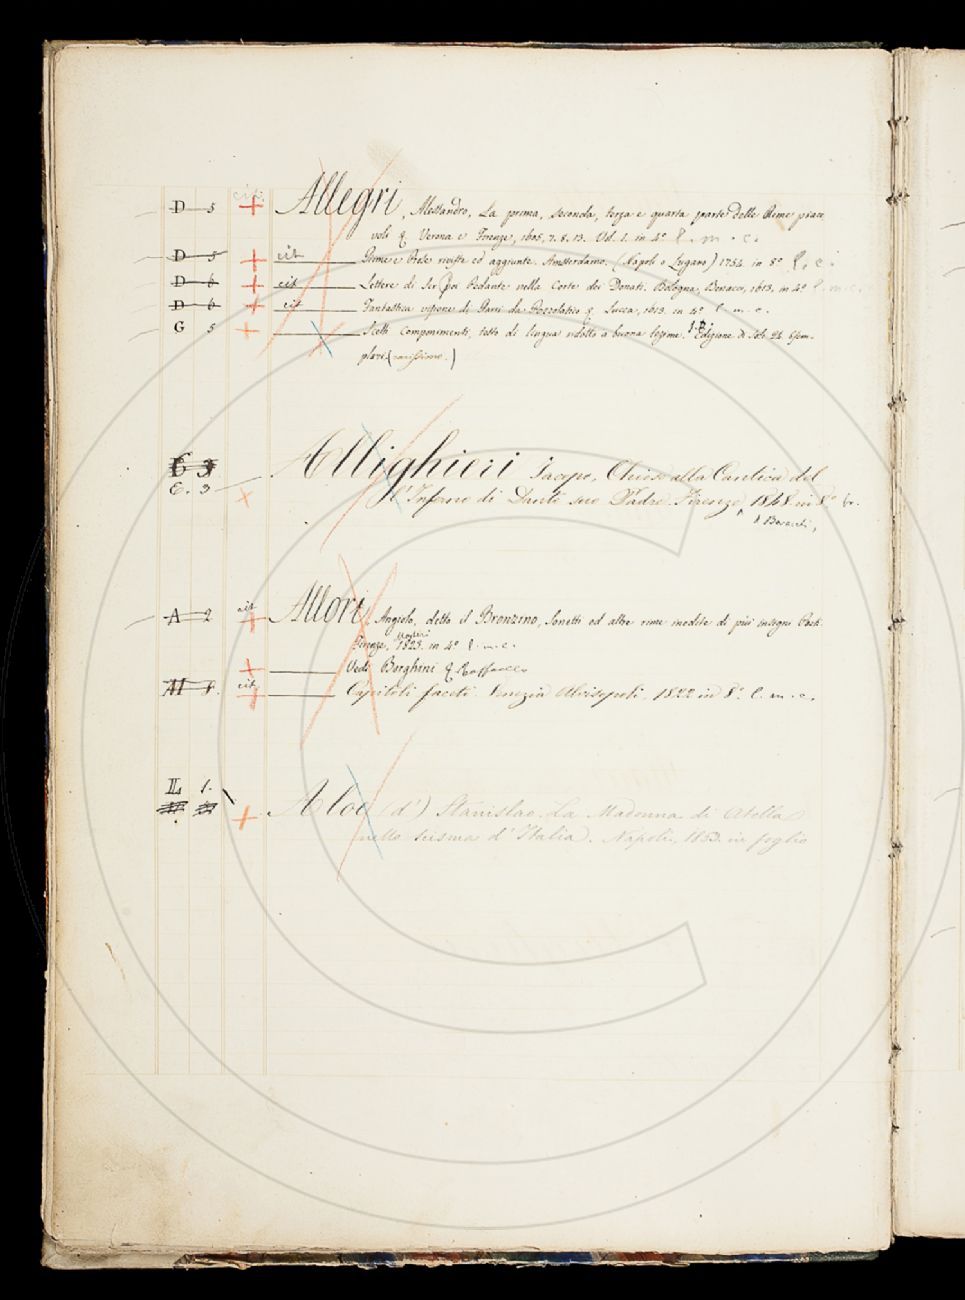 cit.
D 5 + Allegri, Alessandro, La prima, seconda, terza e quarta parte delle Rime piace
voli &. Verona e Firenze, 1605, 7. 8. 13. Vol. 1. in 4º l. m. c.
D 5 + cit Rime e Prose rivíste ed aggiunte. Amsterdamo. (Napoli o Lugano) 1754. in 8º
D 6 + cit Lettere di Ser Poi Pedante nella Corte dei Donati. Bologna, Bonacci, 1613. in 4º l. m. c.
D 6 + cit Fantastica visione di Parri da Pozzolatico &. Lucca, 1613. in 4º l. m. c.
G 5 + Scelti Componimenti, testo di lingua ridotto a buona lezione. Edizione di Soli 24 Esem-
plari. (rarissimo.)
E. 3
Allighieri Jacopo, Chiose alla Cantica del
l'Inferno di Dante suo Padre. Firenze, 1848 in 8º br.
Baracchi,
A 2 cit + Allori Angiolo, detto il Bronzino, Sonetti ed altre rime inedite di più insigni Poeti
Firenze, Magheri 1823. in 4º l. m. c.
+ Vedi Borghini Raffaello
M 1. cit + Capitoli faceti Venezia Alvisopoli, 1822 in 8º l. m. c.
L 1.
+ Aloe (d') Stanislao. La Madonna di Atella
nello scisma d'Italia. Napoli, 1853. in foglio